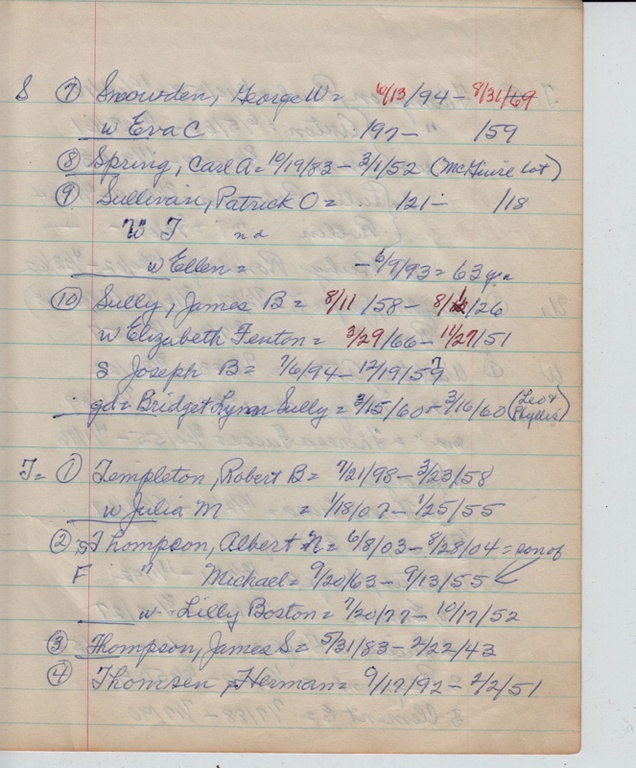 S ⑦ Snowden, George W = 6/13/94 - 8/31/69
w Eva C /97 - /59
⑧ Spring, Carl A = 10/19/83 - 3/1/52 (McGuire Lot)
⑨ Sullivan, Patrick O = /21 - /18
W T nd
w Ellen = - 6/9/93 = 63 yr
⑩ Sully, James B = 8/11/58 - /26
w Elizabeth Fenton = 3/29/66 - 11/27/51
S Joseph B = 7/6/94 - 12/19/57
gd = Bridget Lynn Sully = 3/15/60 - 3/16/60 (Leo & Phyllis)
T = ① Templeton, Robert B = 7/21/98 - 3/23/58
w Julia M = 1/18/07 - 1/25/55
② S Thompson, Albert N = 6/8/03 - 8/28/04 = son of
F " Michael = 9/20/63 - 9/13/55
w - Lilly Boston = 7/20/77 - 10/17/52
③ Thompson, James S = 5/31/83 - 2/22/43
④ Thomsen, Herman = 9/17/92 - 2/2/51